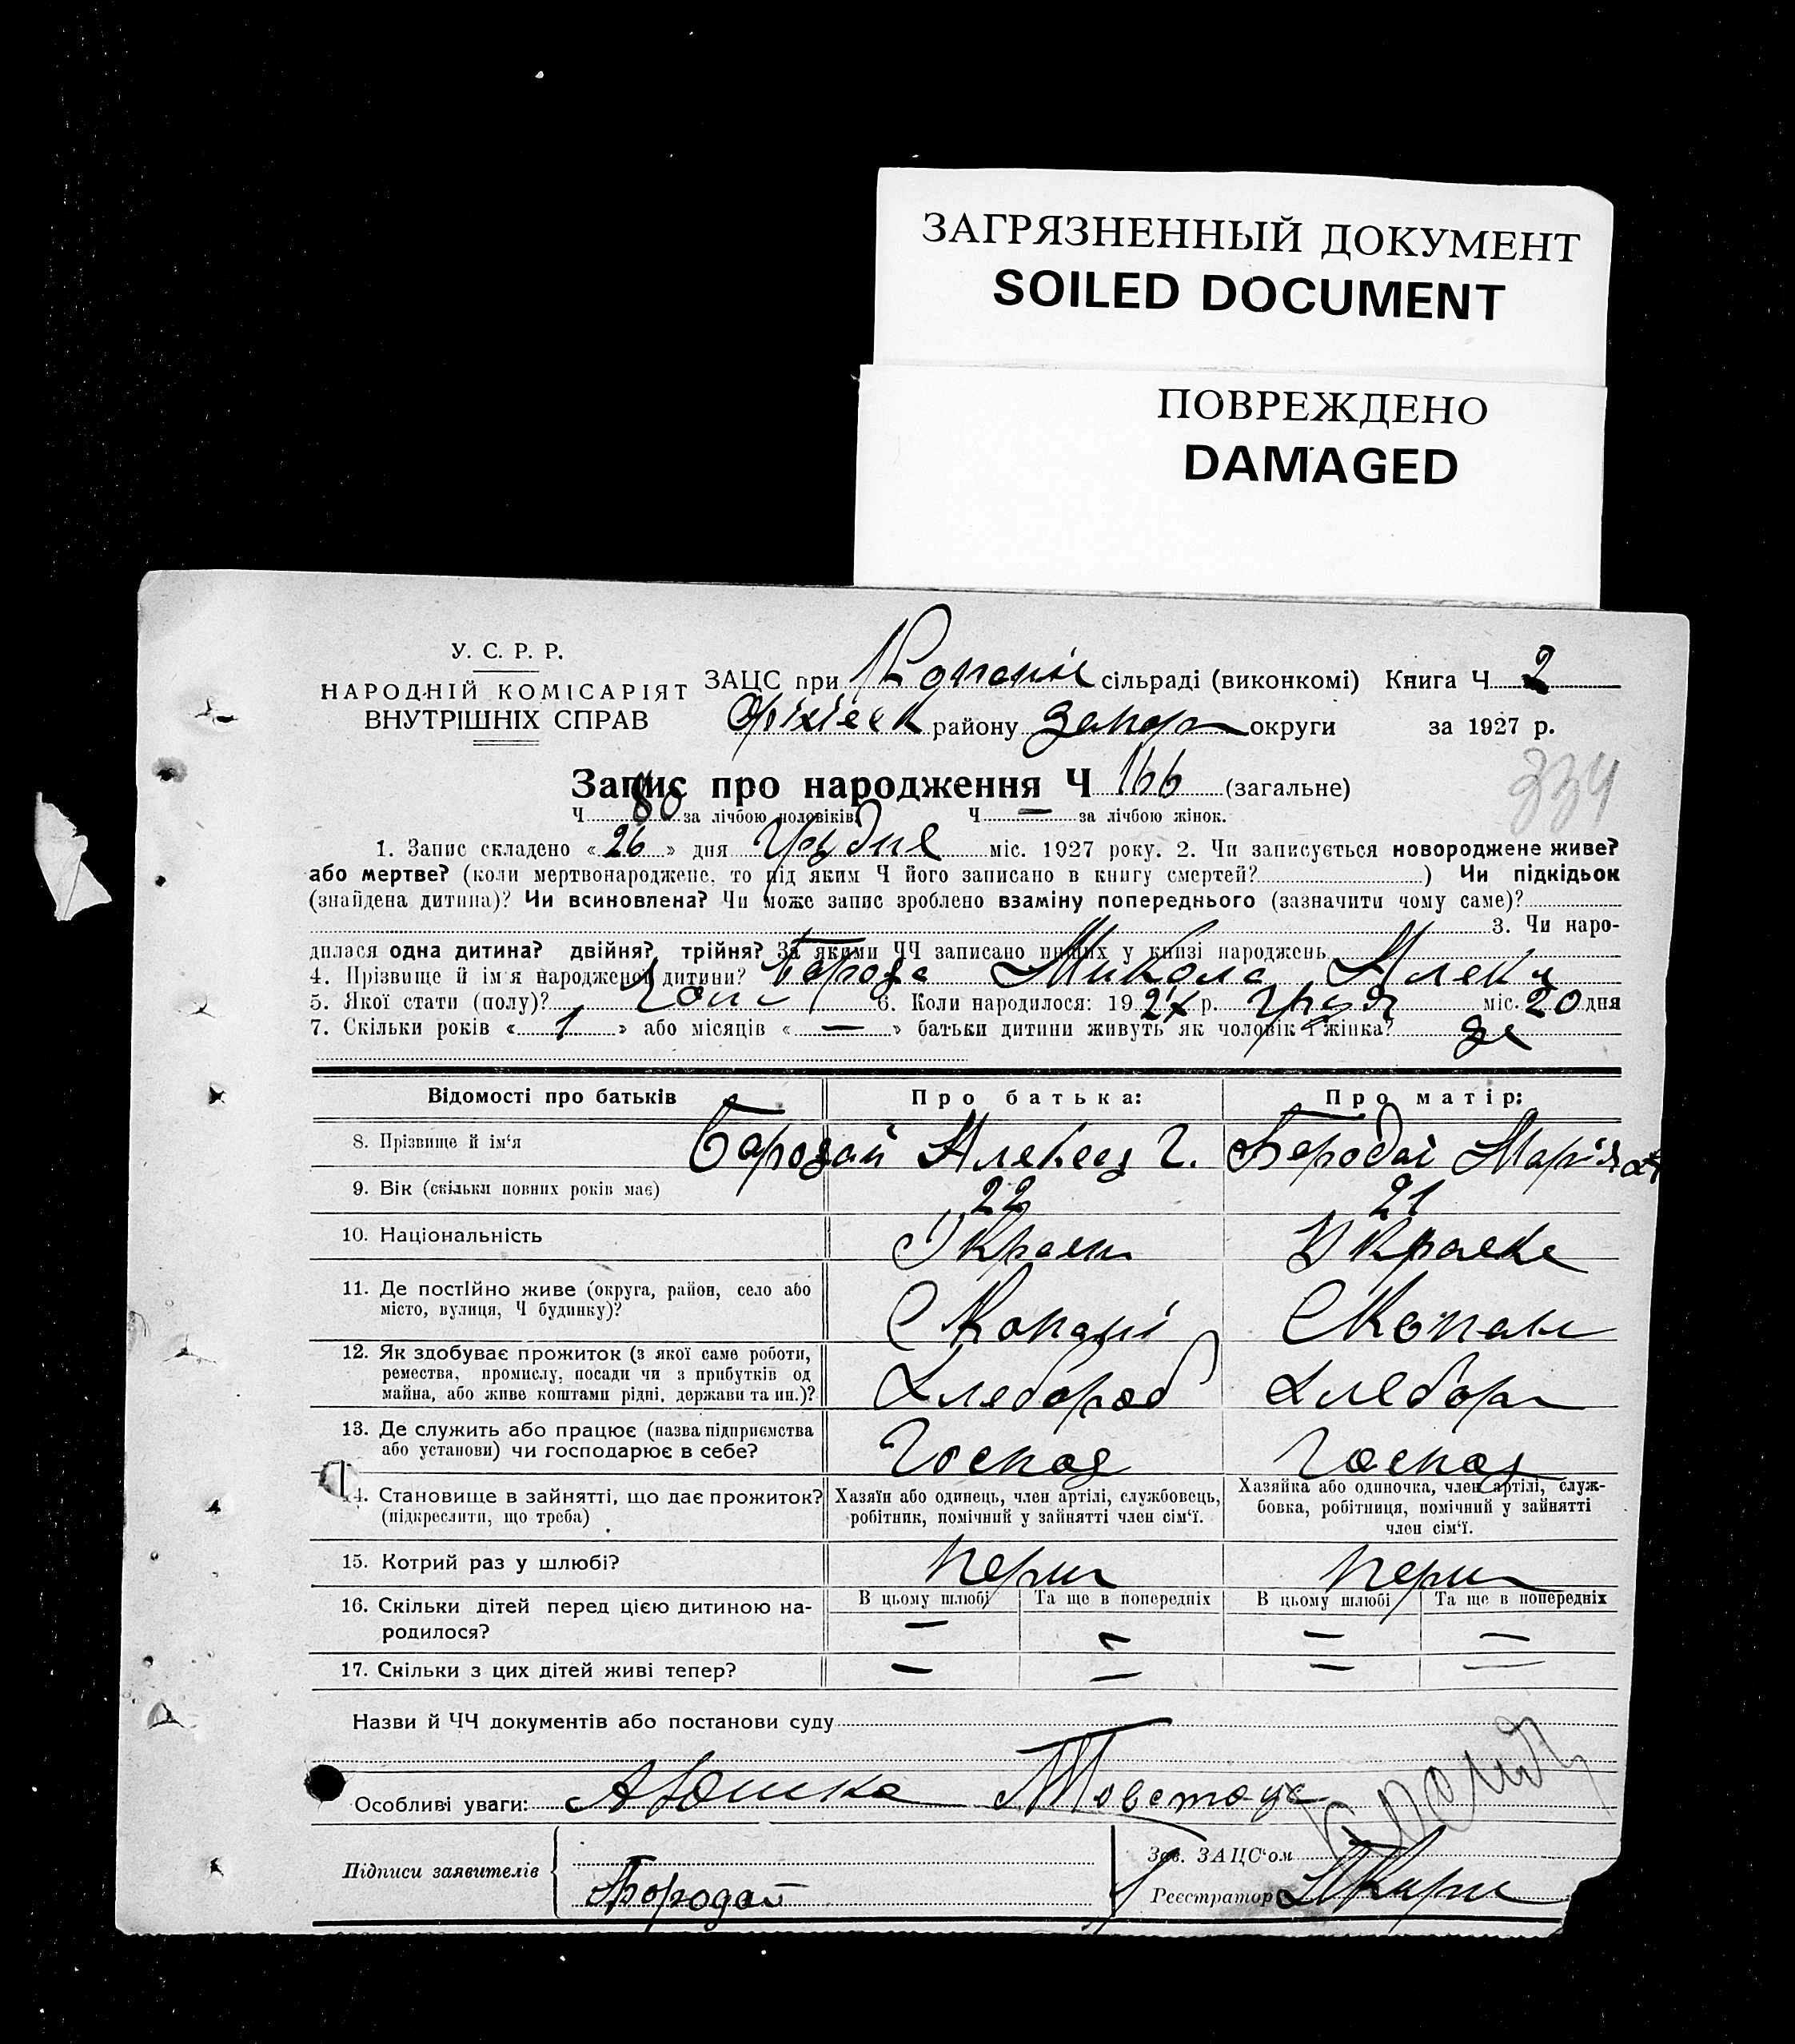 ЗАГРЯЗНЕННЫЙ ДОКУМЕНТ
SOILED DOCUMENT
ПОВРЕЖДЕНО
DAMAGED
У. С. Р. Р.
НАРОДНІЙ КОМІСАРІЯТ
ВНУТРІШНІХ СПРАВ
ЗАЦС при сільраді (виконкомі) Книга Ч 2
району Запор округи за 1927 р.
Запис про народження Ч 166 (загальне)
334
Ч 80 за лічбою чоловіків. Ч — за лічбою жінок.
1. Запис складено «26» дня Грудня міс. 1927 року. 2. Чи записується новороджене живе?
або мертве? (коли мертвонароджене, то під яким Ч його записано в книгу смертей? ) Чи підкідьок
(знайдена дитина)? Чи всиновлена? Чи може запис зроблено взаміну попереднього (зазначити чому саме)?
3. Чи наро-
дилася одна дитина? двійня? трійня? За якими ЧЧ записано инших у книзі народжень
4. Прізвище й ім'я народженої дитини? Микола
5. Якої стати (полу)? 6. Коли народилося: 1927 р. міс. 20 дня
7. Скільки років «1» або місяців «—» батьки дитини живуть як чоловік і жінка?
Відомості про батьків Про батька: Про матір:
8. Прізвище й ім'я Бародай Алексей Г. Бародай Марія
9. Вік (скільки повних років має) 22 21
10. Національність Украен Украека
11. Де постійно живе (округа, район, село або
місто, вулиця, Ч будинку)? С Копані С Копані
12. Як здобуває прожиток (з якої саме роботи,
ремества, промислу, посади чи з прибутків од
майна, або живе коштами рідні, держави та ин.)? Хлебороб Хлебор
13. Де служить або працює (назва підприємства
або установи) чи господарює в себе? Господ Господ
14. Становище в зайнятті, що дає прожиток?
(підкреслити, що треба)
Хазяїн або одинець, член артілі, службовець,
робітник, помічний у зайнятті член сім'ї.
Хазяйка або одиночка, член артілі, служ-
бовка, робітниця, помічний у зайнятті
член сім'ї.
15. Котрий раз у шлюбі? перш перш
В цьому шлюбі Та ще в попередніх В цьому шлюбі Та ще в попередніх
16. Скільки дітей перед цією дитиною на-
родилося? — — — —
17. Скільки з цих дітей живі тепер? — — — —
Назви й ЧЧ документів або постанови суду
Особливі уваги:
Підписи заявителів
Бородай
Зав. ЗАЦС'ом
Реєстратор